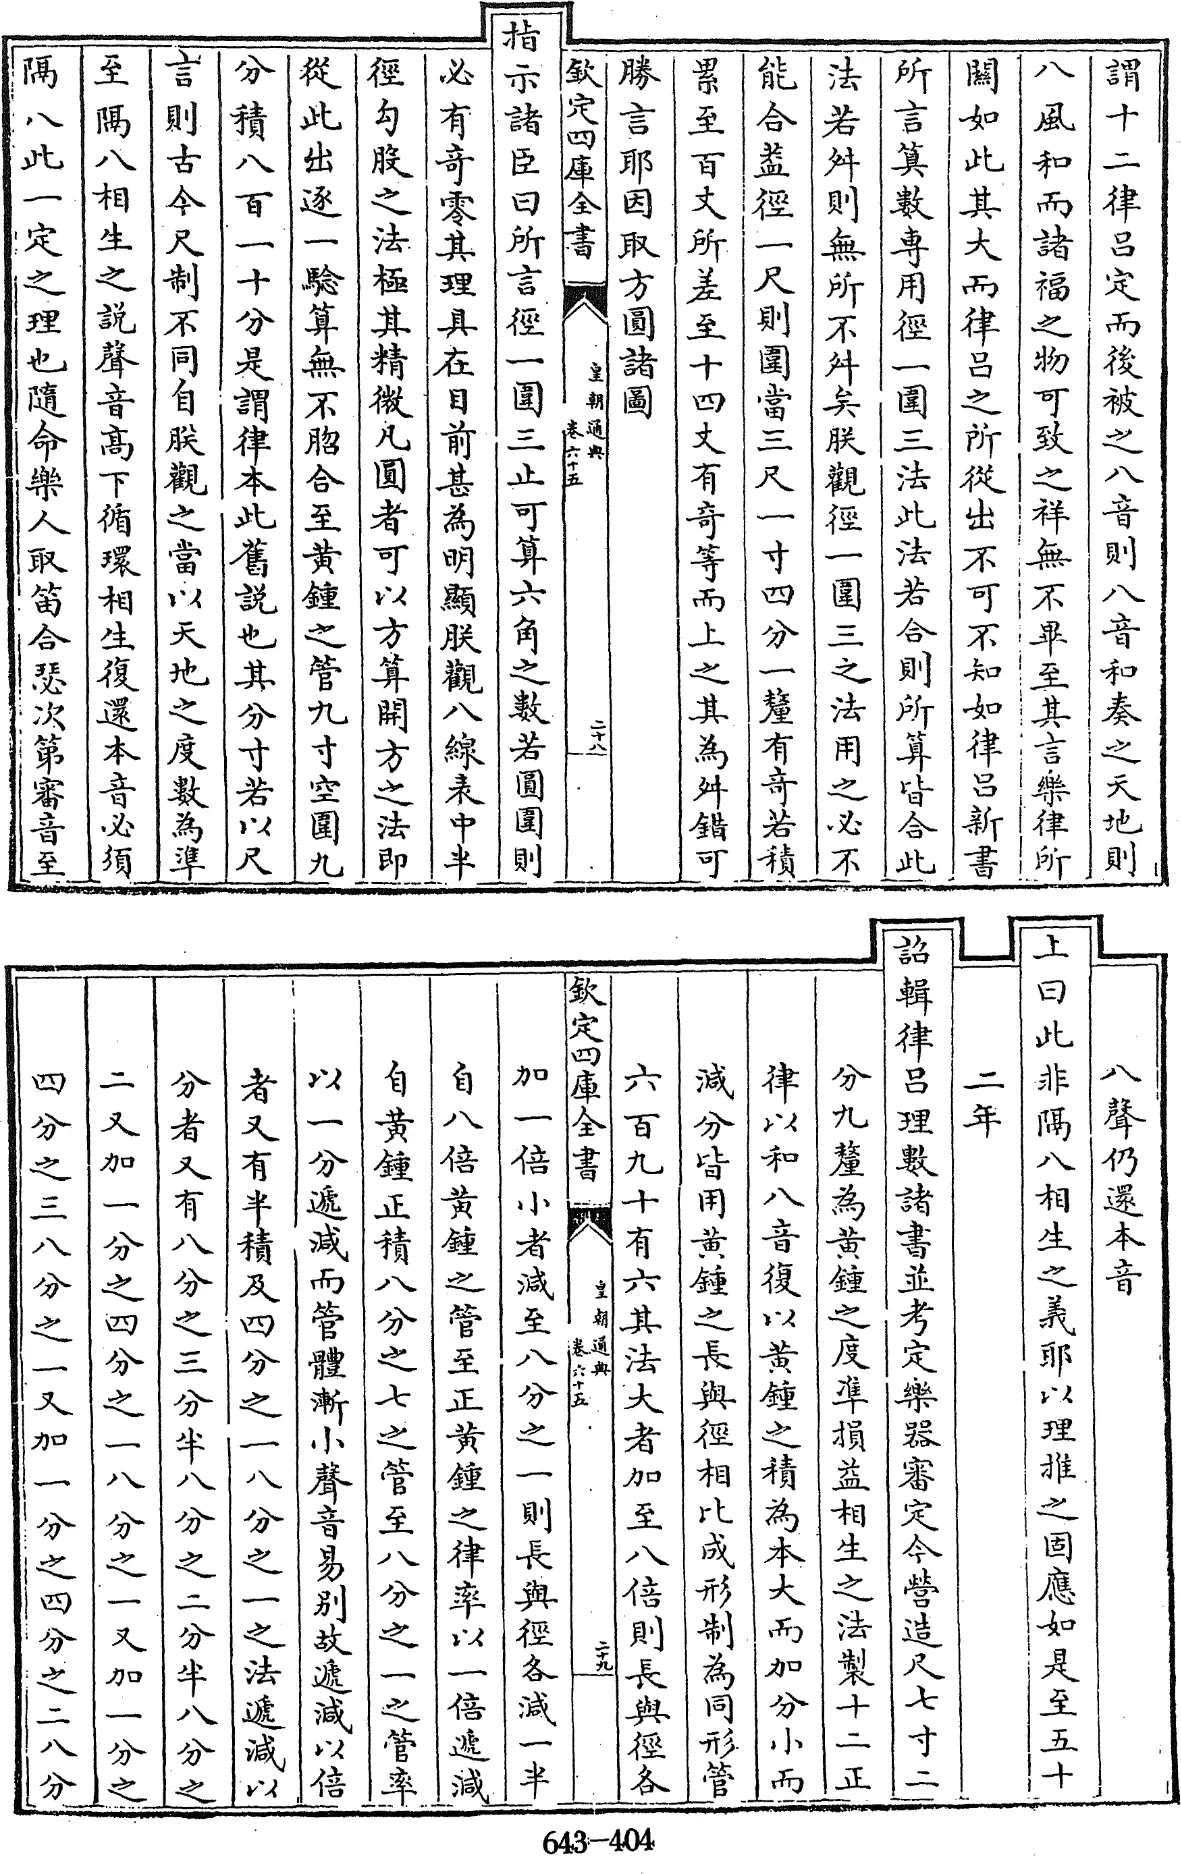 謂十二律呂定而後被之八音則八音和奏之天地則
八風和而諸福之物可致之祥無不畢至其言樂律所
關如此其大而律呂之所從出不可不知如律呂新書
所言算數專用徑一圍三法此法若合則所算皆合此
法若舛則無所不舛矣朕觀徑一圍三之法用之必不
能合葢徑一尺則圍當三尺一寸四分一釐有奇若積
累至百丈所差至十四丈有奇等而上之其為舛錯可
勝言耶因取方圓諸圖
欽定四庫全書
皇朝通典
卷六十五
二十八
指示諸臣曰所言徑一圍三止可算六角之數若圓圍則
必有奇零其理具在目前甚為明顯朕觀八線表中半
徑勾股之法極其精微凡圓者可以方算開方之法即
從此出逐一驗算無不脗合至黃鍾之管九寸空圍九
分積八百一十分是謂律本此舊說也其分寸若以尺
言則古今尺制不同自朕觀之當以天地之度數為準
至隔八相生之說聲音高下循環相生復還本音必須
隔八此一定之理也隨命樂人取笛合瑟次第審音至
八聲仍還本音
上曰此非隔八相生之義耶以理推之固應如是至五十
二年
詔輯律呂理數諸書並考定樂器審定今營造尺七寸二
分九釐為黃鍾之度準損益相生之法製十二正
律以和八音復以黃鍾之積為本大而加分小而
減分皆用黃鍾之長與徑相比成形制為同形管
六百九十有六其法大者加至八倍則長與徑各
欽定四庫全書
皇朝通典
卷六十五
二十九
加一倍小者減至八分之一則長與徑各減一半
自八倍黃鍾之管至正黃鍾之律率以一倍遞減
自黃鍾正積八分之七之管至八分之一之管率
以一分遞減而管體漸小聲音易別故遞減以倍
者又有半積及四分之一八分之一之法遞減以
分者又有八分之三分半八分之二分半八分之
二又加一分之四分之一八分之一又加一分之
四分之三八分之一又加一分之四分之二八分
643-404